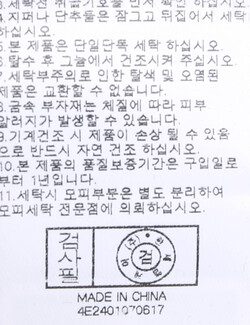 3.세탁전 취급기호를 먼저 확인 하십시오.
4.지퍼나 단추를은 잠그고 뒤집어서 세탁
하십시오.
5.본 제품은 단일단목 세탁 하십시오.
6.탈수 후 그늘에서 건조시켜 주십시오.
7.세탁부주의로 인한 탈색 및 오염된
제품은 교환할 수 없습니다.
8.금속 부자재는 체질에 따라 피부
알러지가 발생할 수 있습니다.
9.기계건조 시 제품이 손상 될 수 있음
으로 반드시 자연 건조 하십시오.
10.본 제품의 품질보증기간은 구입일로
부터 1년입니다.
11.세탁시 모피부분은 별도 분리하여
모피세탁 전문점에 의뢰하십시오.
검사필
검
MADE IN CHINA
4E2401070617